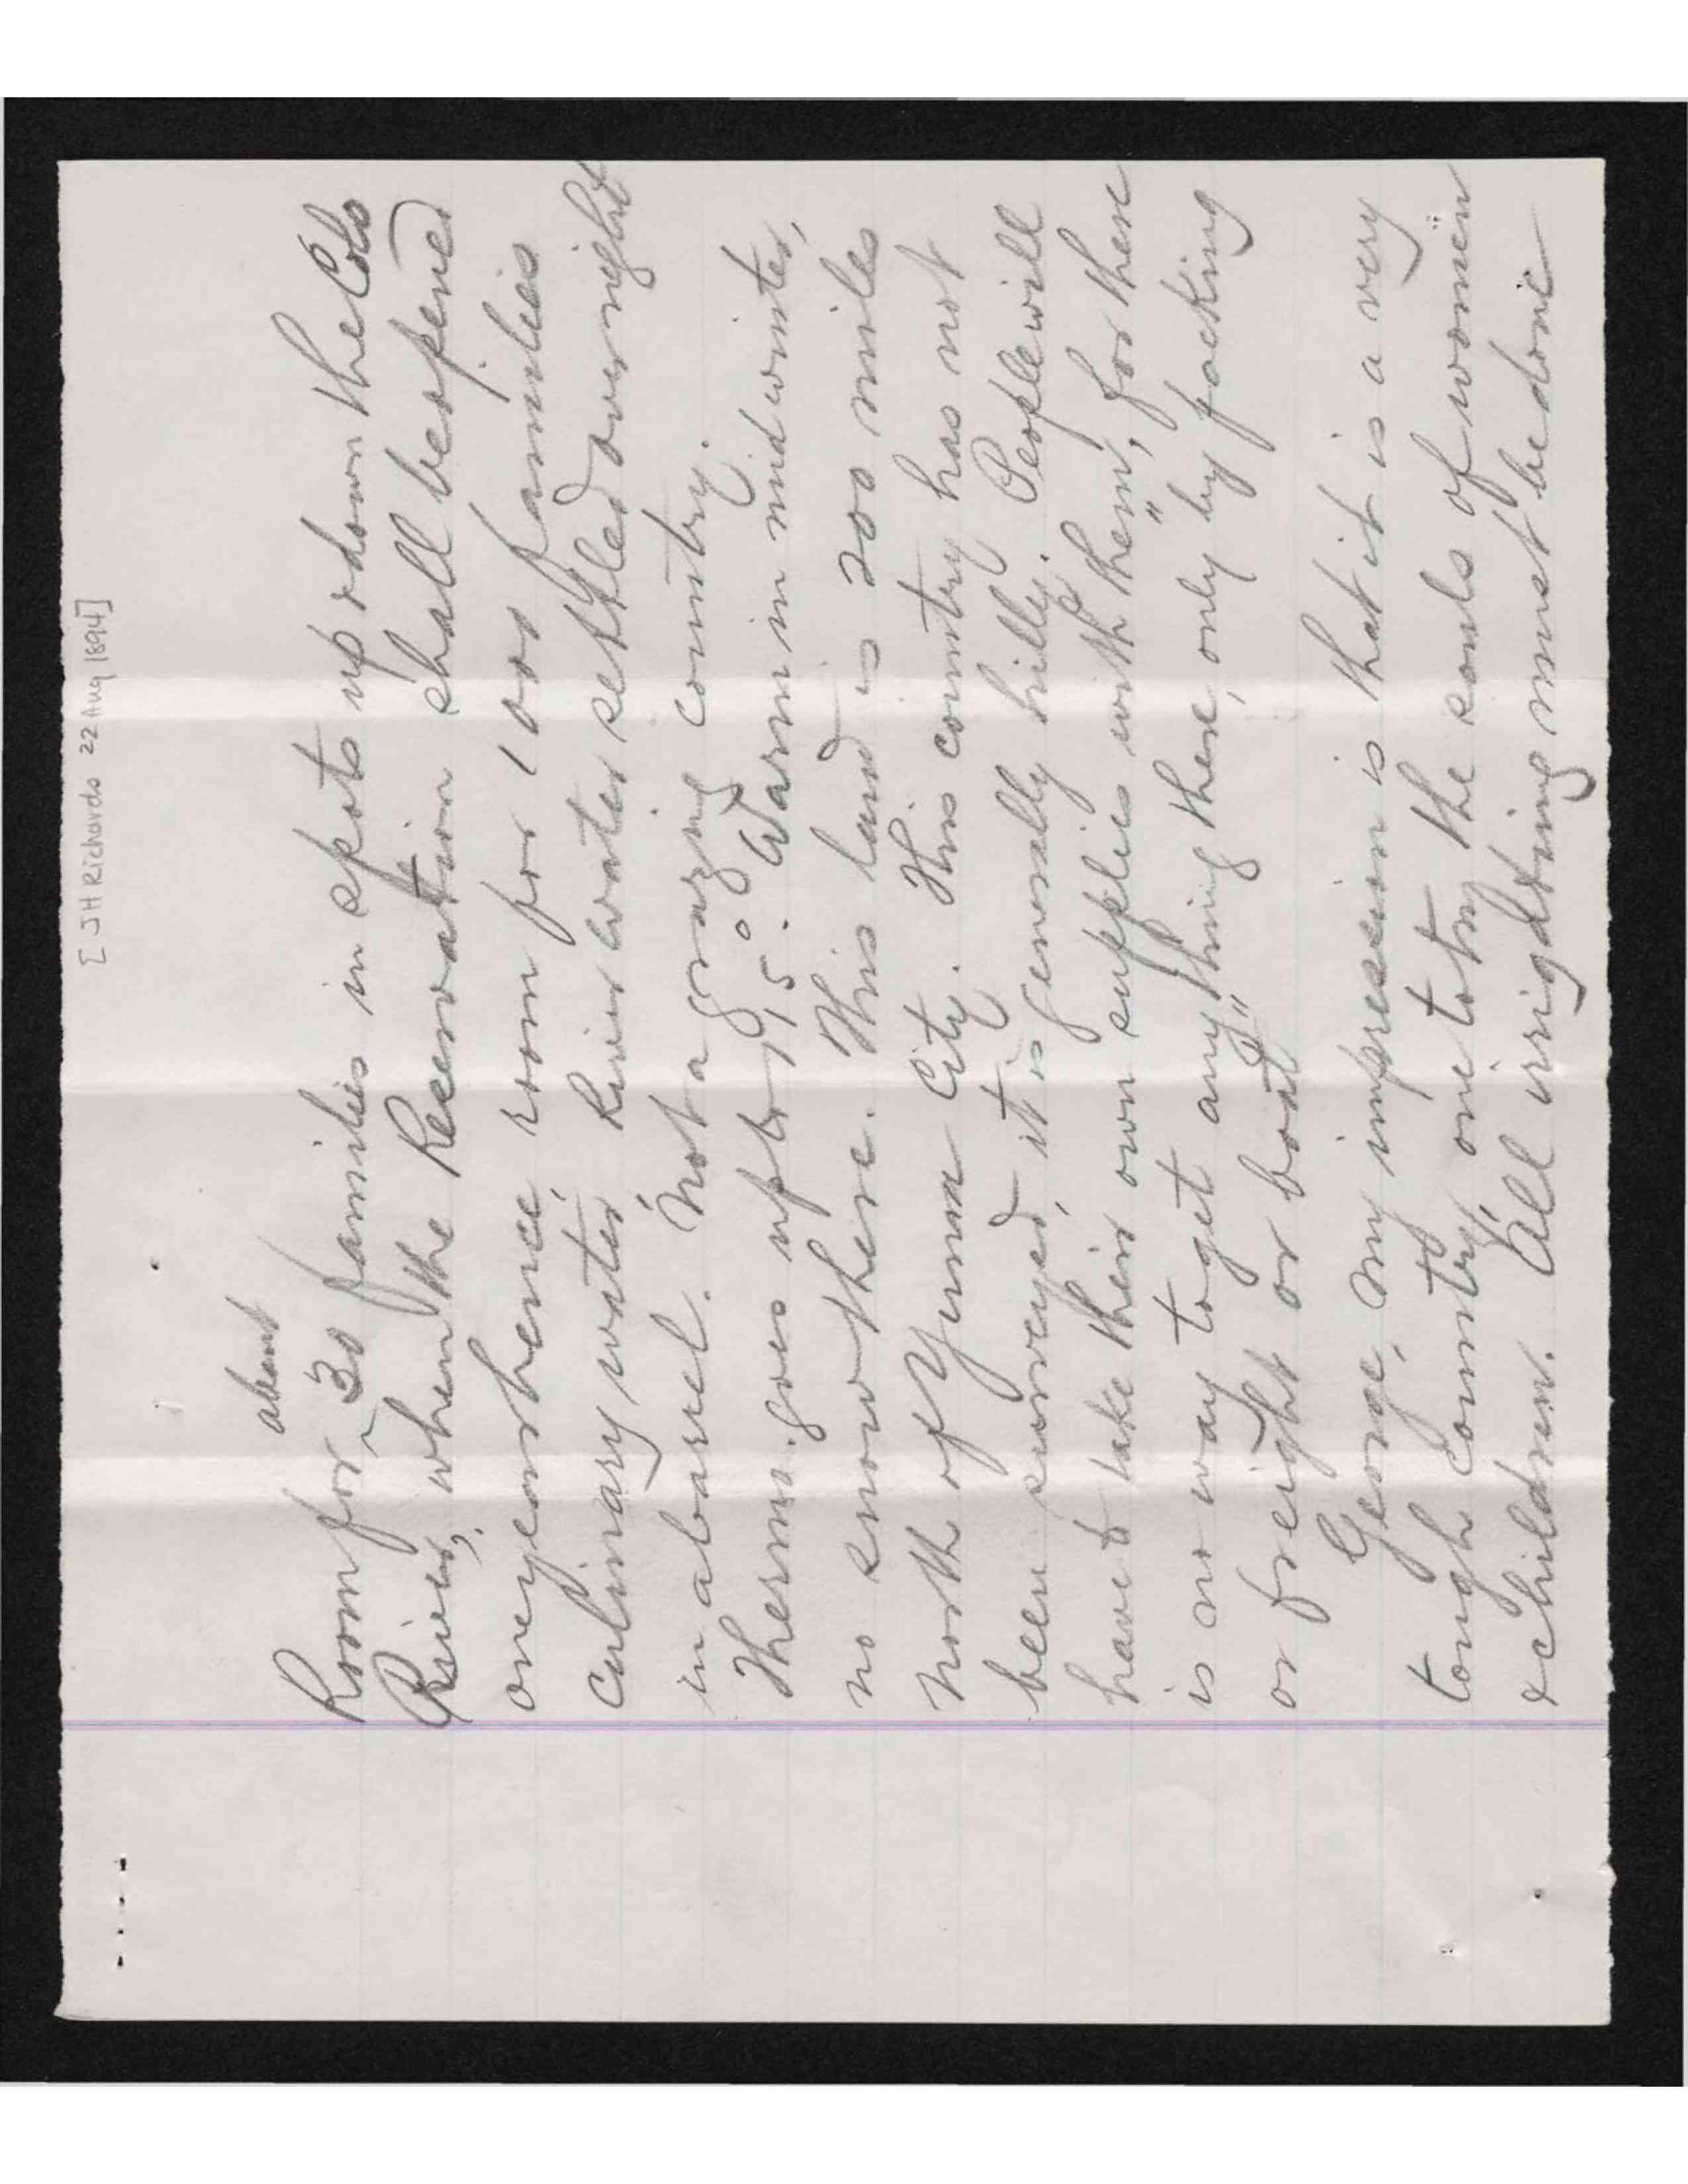 [JH Richards 22 Aug 1894]
about
Room for ^ 30 families in spots up & down the Colo
River, when the Reservation shall be opened
one year hence, room for 1000 families
Culinary water, River water settled over night
in a barrel. Not a grazing country.
Therm. goes up to 115.° Warm in mid winter,
no snow there. This land is 200 miles
north of Yuma City. This country has not
been surveyed, it is generally hilly. People will
have to take their own supplies with them, for there
is no way to get "any thing there, only by packing"
or freight or boat"
George, My impression is that it is a very
tough country, one to try the souls of women
& children. All irrigating must be done